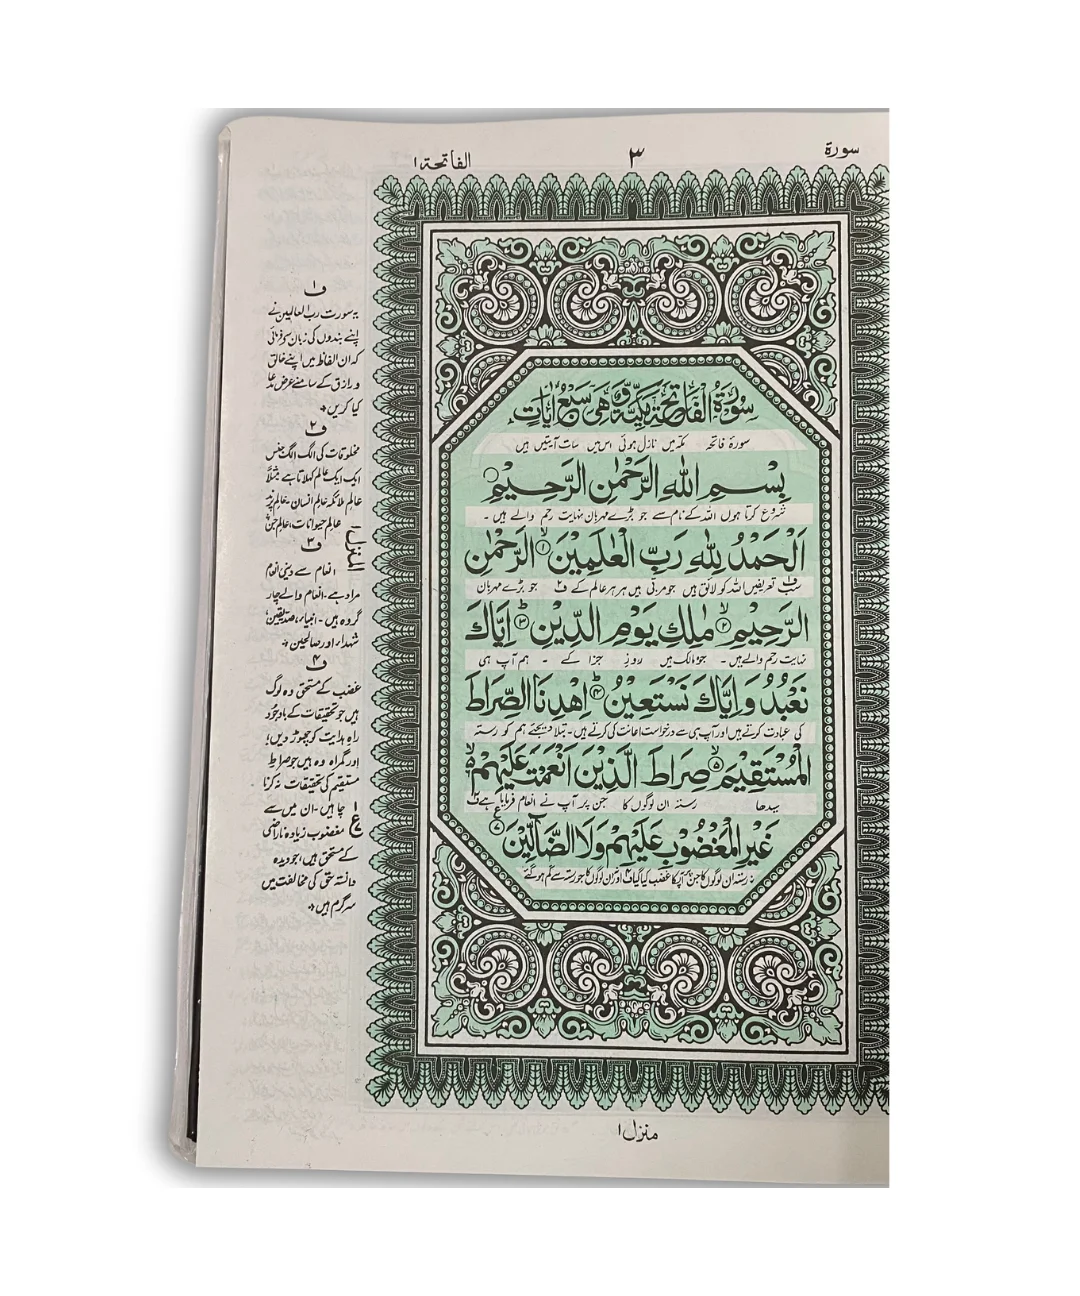 سورة ٣ الفاتحة ١
سُوْرَةُ الْفَاتِحَةِ مَكِّيَّةٌ وَّهِيَ سَبْعُ اٰيَاتٍ
سورۃ فاتحہ مکہ میں نازل ہوئی اس میں سات آیتیں ہیں
بِسْمِ اللّٰهِ الرَّحْمٰنِ الرَّحِيْمِ
شروع کرتا ہوں اللہ کے نام سے جو بڑے مہربان نہایت رحم والے ہیں ۔
اَلْحَمْدُ لِلّٰهِ رَبِّ الْعٰلَمِيْنَ ۙ۱ الرَّحْمٰنِ
سب تعریفیں اللہ کو لائق ہیں جو مربی ہیں ہر ہر عالم کے ف۲ جو بڑے مہربان
الرَّحِيْمِ ۙ۲ مٰلِكِ يَوْمِ الدِّيْنِ ۳ اِيَّاكَ
نہایت رحم والے ہیں ۔ جو مالک ہیں روزِ جزا کے ۔ ہم آپ ہی
نَعْبُدُ وَاِيَّاكَ نَسْتَعِيْنُ ۴ اِهْدِنَا الصِّرَاطَ
کی عبادت کرتے ہیں اور آپ ہی سے درخواست اعانت کی کرتے ہیں ۔ بتلا دیجئے ہم کو رستہ
الْمُسْتَقِيْمَ ۙ۵ صِرَاطَ الَّذِيْنَ اَنْعَمْتَ عَلَيْهِمْ
سیدھا رستہ ان لوگوں کا جن پر آپ نے انعام فرمایا ہے ف۳
غَيْرِ الْمَغْضُوْبِ عَلَيْهِمْ وَلَا الضَّآلِّيْنَ ۷
نہ رستہ ان لوگوں کا جن پر آپ کا غضب کیا گیا ف۴ اور نہ ان لوگوں کا جو رستہ سے گم ہو گئے
ف۱
یہ سورت رب العالمین نے
اپنے بندوں کی زبان سے فرمائی
کہ ان الفاظ میں اپنے خالق
و رازق کے سامنے عرض مدعا
کیا کریں
ف۲
مخلوقات کی الگ الگ جنس
ایک ایک عالم کہلاتا ہے مثلاً
عالم ملائکہ عالم انسان ۔ عالم پرند
عالم حیوانات، عالم جن
ف۳
انعام سے دینی انعام
مراد ہے ۔ انعام والے چار
گروہ ہیں ۔ انبیاء، صدیقین،
شہداء اور صالحین
ف۴
غضب کے مستحق وہ لوگ
ہیں جو تحقیقات کے باوجود
راہ ہدایت کو چھوڑ دیں؛
اور گمراہ وہ ہیں جو صراط
مستقیم کی تحقیقات نہ کرنا
چاہیں ۔ ان میں سے
مغضوب زیادہ ناراضی
کے مستحق ہیں، جو دیدہ
دانستہ حق کی مخالفت میں
سرگرم ہیں
منزل ۱